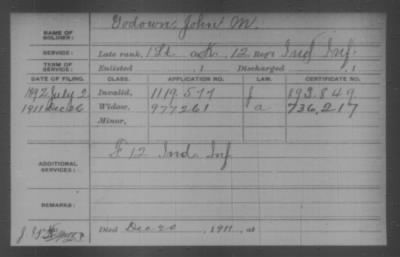 NAME OF SOLDIER: Godown, John M.
SERVICE: Late rank, 1 Lt Co. K, 12 Reg't Ind Inf.
TERM OF SERVICE: Enlisted , 1 Discharged , 1
DATE OF FILING. CLASS. APPLICATION NO. LAW. CERTIFICATE NO.
1892 July 2 Invalid, 1119.577 J 893.849
1911 Dec 26 Widow, 977261 a 736,217
Minor,
ADDITIONAL SERVICES: F 12 Ind. Inf
REMARKS:
Died Dec 20, 1911, at